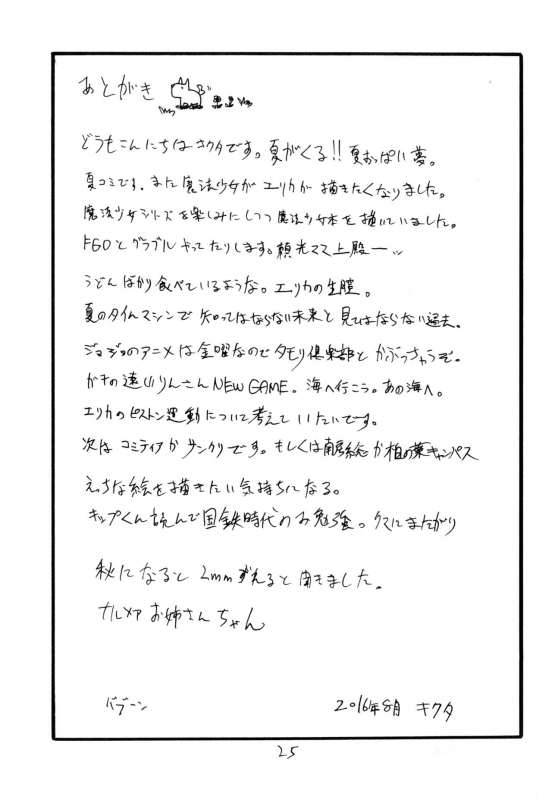 あとがき
どうもこんにちはキクタです。夏がくる!! 夏おっぱい夢。
夏コミです。また魔法少女がエリカが描きたくなりました。
魔法少女シリーズを楽しみにしつつ魔法少女本を描いていました。
FGOとグラブルやってたりします。頼光ママ上殿ー
うどんばかり食べているような。エリカの生膣。
夏のタイムマシンで知ってはならない未来と見てはならない過去。
ジョジョのアニメは金曜なのでタモリ倶楽部とかぶっちゃうぞ。
ガチの遠山りんさんNEW GAME。海へ行こう。あの海へ。
エリカのピストン運動について考えていたいです。
次はコミティアかサンクリです。もしくは南房総か柏の葉キャンパス
えっちな絵を描きたい気持ちになる。
キップくん読んで国鉄時代のお勉強。クマにまたがり
秋になると2mmずれると聞きました。
ナルメアお姉さんちゃん
バブーン
2016年8月 キクタ
25